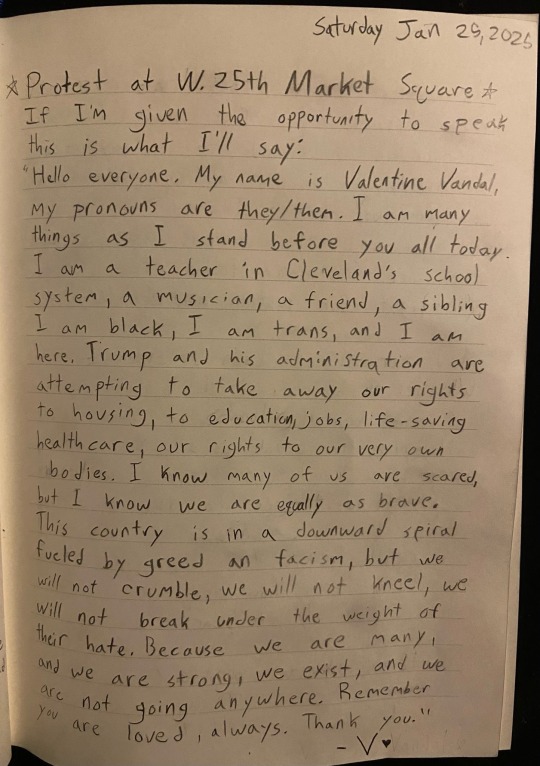 Saturday Jan 25, 2025
☆Protest at W. 25th Market Square☆
If I'm given the opportunity to speak
this is what I'll say:
"Hello everyone. My name is Valentine Vandal,
my pronouns are they/them. I am many
things as I stand before you all today.
I am a teacher in Cleveland's school
system, a musician, a friend, a sibling
I am black, I am trans, and I am
here. Trump and his administration are
attempting to take away our rights
to housing, to education, jobs, life-saving
healthcare, our rights to our very own
bodies. I know many of us are scared,
but I know we are equally as brave.
This country is in a downward spiral
fueled by greed an facism, but we
will not crumble, we will not kneel, we
will not break under the weight of
their hate. Because we are many,
and we are strong, we exist, and we
are not going anywhere. Remember
you are loved, always. Thank you."
- V♥